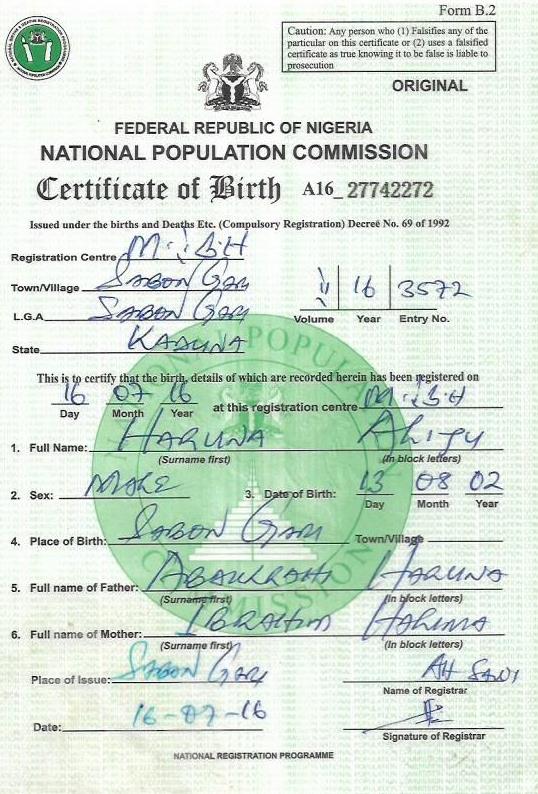 Form B.2
Caution: Any person who (1) Falsifies any of the
particular on this certificate or (2) uses a falsified
certificate as true knowing it to be false is liable to
prosecution
ORIGINAL
FEDERAL REPUBLIC OF NIGERIA
NATIONAL POPULATION COMMISSION
Certificate of Birth A16_ 27742272
Issued under the births and Deaths Etc. (Compulsory Registration) Decree No. 69 of 1992
Registration Centre
Town/Village SABON GARI
L.G.A SABON GARI
16 3572
Volume Year Entry No.
State KADUNA
This is to certify that the birth, details of which are recorded herein has been registered on
16 07 16 at this registration centre
Day Month Year
1. Full Name: HARUNA ALIYU
(Surname first) (In block letters)
2. Sex: MALE 3. Date of Birth: 13 08 02
Day Month Year
4. Place of Birth: SABON GARI Town/Village
5. Full name of Father: HARUNA
(Surname first) (In block letters)
6. Full name of Mother: IBRAHIM HALIMA
(Surname first) (In block letters)
Place of Issue: SABON GARI AH SANI
Name of Registrar
Date: 16-07-16
Signature of Registrar
NATIONAL REGISTRATION PROGRAMME